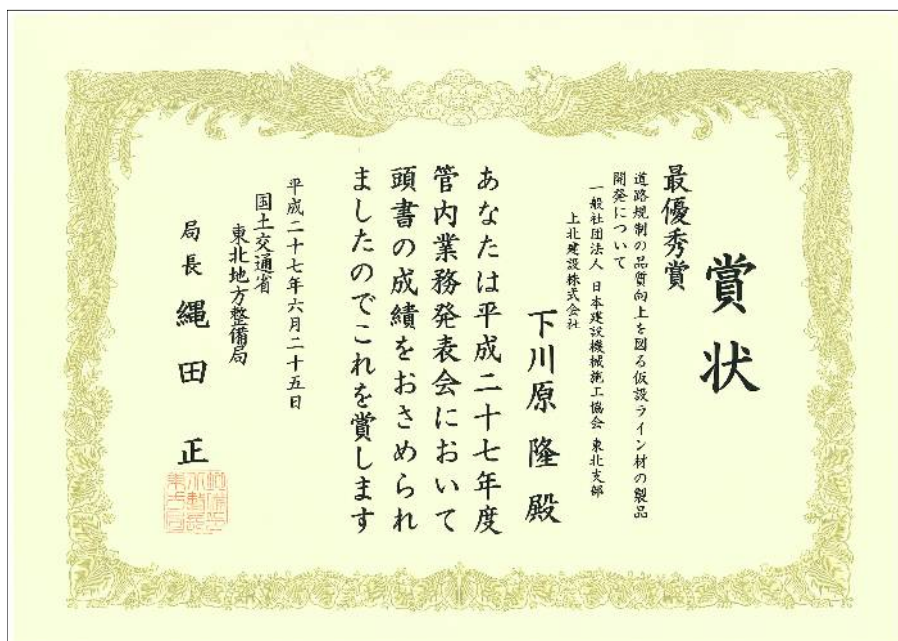 賞状
最優秀賞
道路規制の品質向上を図る仮設ライン材の製品
開発について
一般社団法人 日本建設機械施工協会 東北支部
上北建設株式会社
下川原 隆 殿
あなたは平成二十七年度
管内業務発表会において
頭書の成績をおさめられ
ましたのでこれを賞します
平成二十七年六月二十五日
国土交通省
東北地方整備局
局長 縄田 正